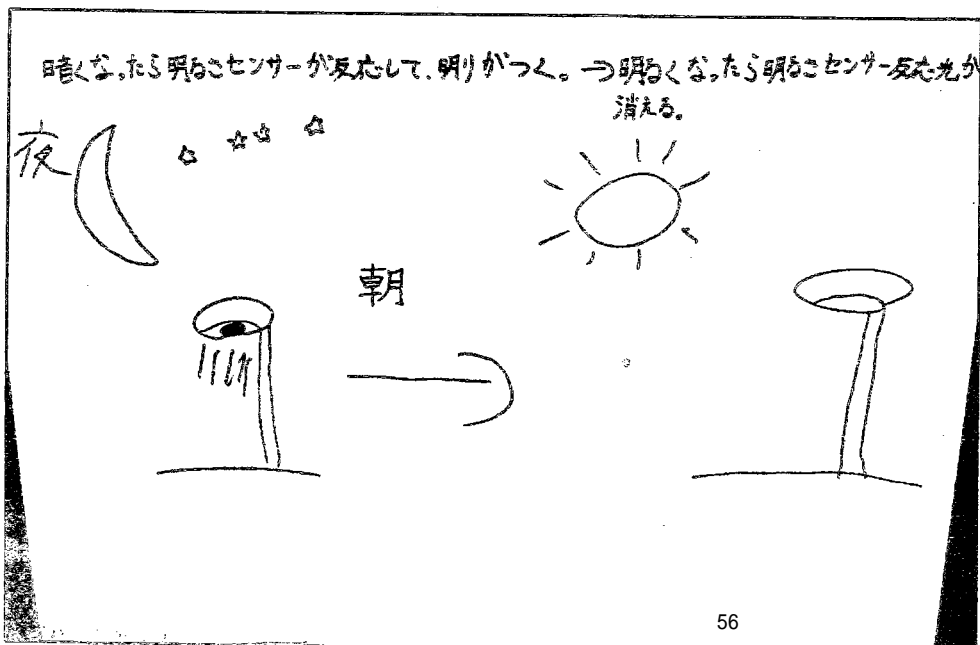 暗くなったら明るさセンサーが反応して、明りがつく。→明るくなったら明るさセンサー反応光が
消える。
夜
朝
56